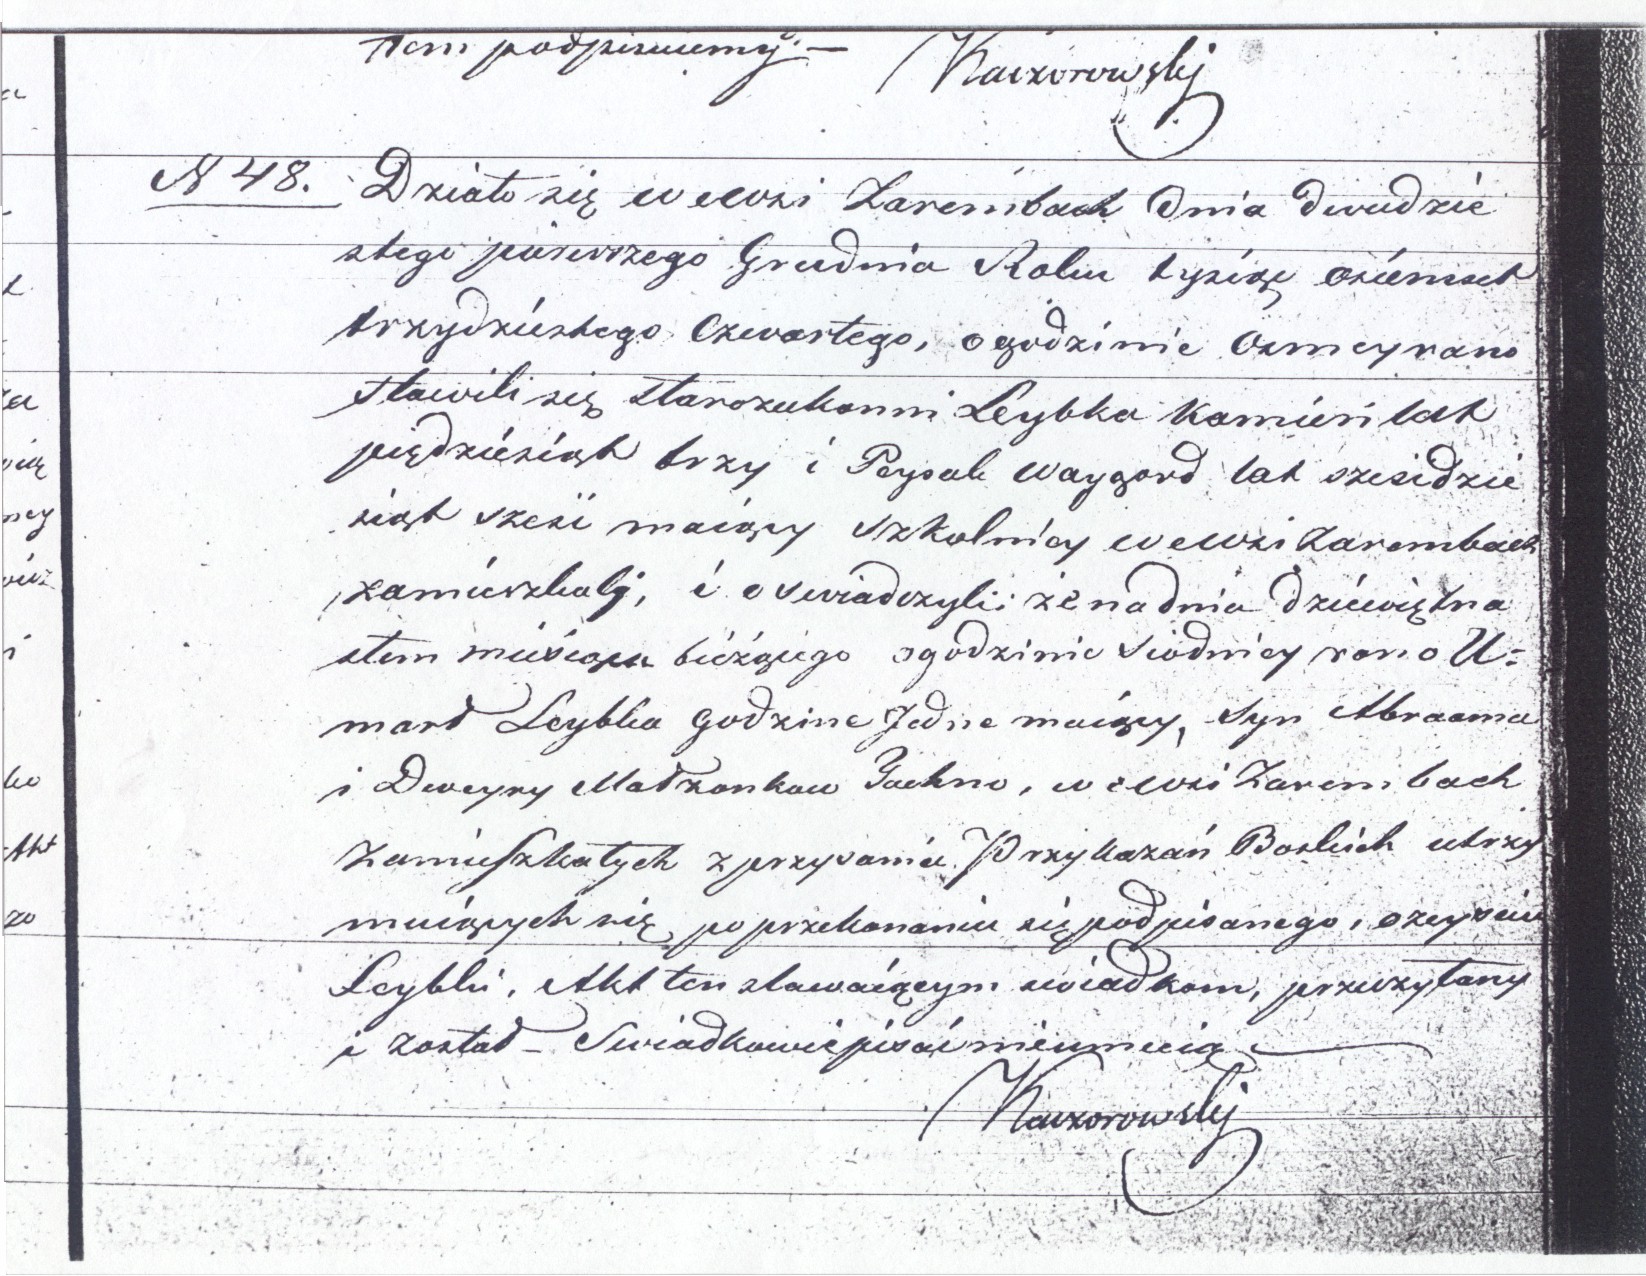 tem podpisuiemy. — Kaczorowskj
N 48. Działo się w ewsi Zarembach Dnia dwudzie
stego pierwszego Grudnia Roku tysiąc ośiemset
trzydziestego Czwartego, o godzinie Osmey rano
Stawili się starozakonni Leybka Kamień lat
pięდziesiąt trzy i Peysak Waygord lat szesidzie
siąt szesi maiący Szkolnicy w ewsi Zarembach
zamieszkaly, i oswiadczyli że na dnia dziewiętna
stem miesiąca bieżącego o godzinie siodmey rano U=
mard Leybka godzine Jedne maiący, syn Abraama
i Dweyry Małzonkow Jachno, w ewsi Zarembach
Zamieszkałych z przysania Przykazań Boskich utrzy
muiących się, po przekonaniu się podpisanego, o zeysciu
Leybki, Akt ten stawaiącym swiadkom, przeczytany
i został – Swiadkowie pisać nieumieią
Kaczorowskj
a
t
ney
i
ko
Akt
zo